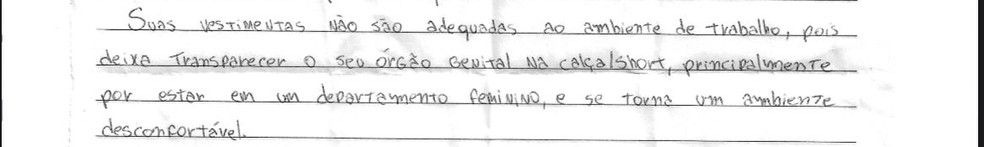 Suas vestimentas não são adequadas ao ambiente de trabalho, pois
deixa transparecer o seu órgão genital na calça/short, principalmente
por estar em um departamento feminino, e se torna um ambiente
desconfortável.